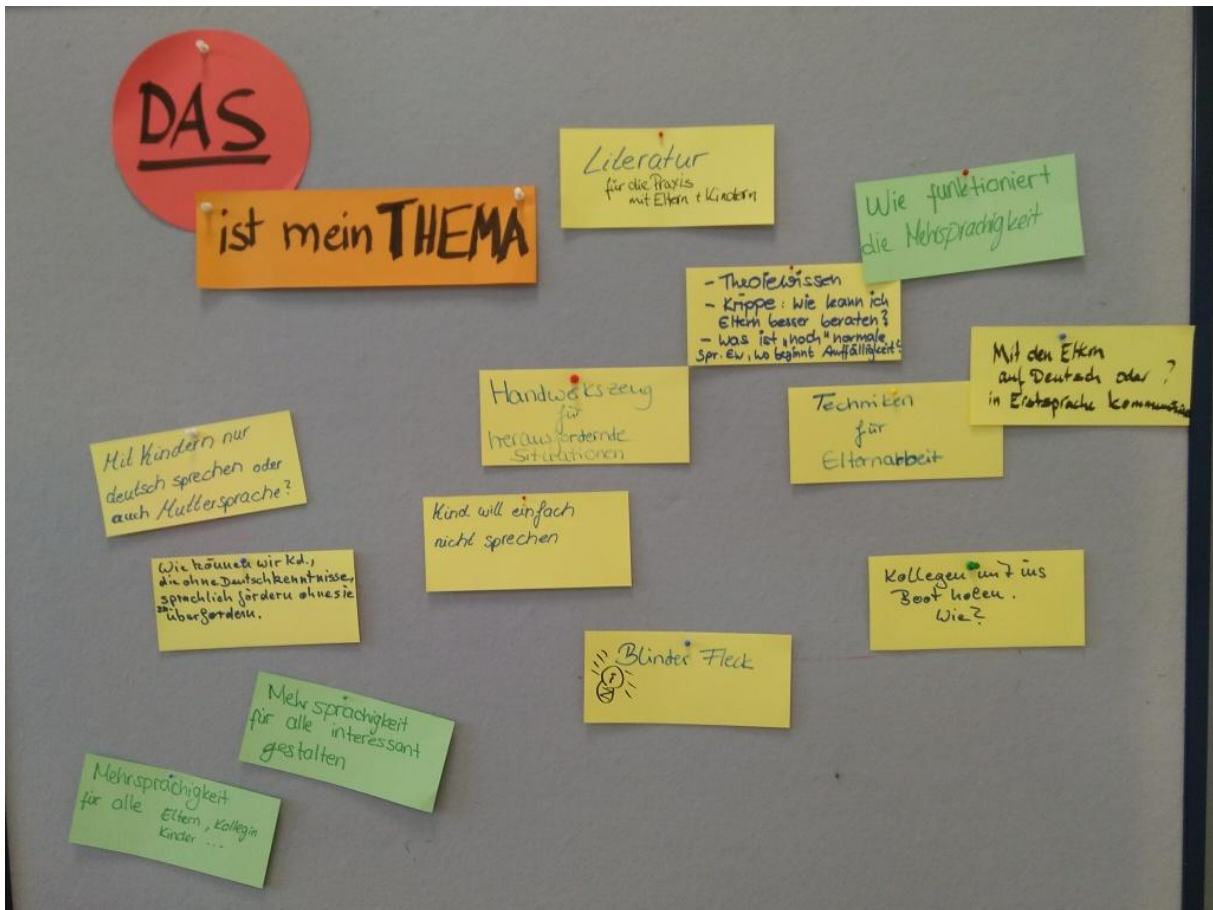 DAS
ist mein THEMA
Literatur
für die Praxis
mit Eltern + Kindern
Wie funktioniert
die Mehrsprachigkeit
- Theoriewissen
- Krippe: wie kann ich
Eltern besser beraten?
- was ist „noch" normale
Spr. Ew, wo beginnt Auffälligkeit?
Mit den Eltern
auf Deutsch oder ?
in Erstsprache
Handwerkszeug
für
herausfordernde
Situationen
Techniken
für
Elternarbeit
Mit Kindern nur
deutsch sprechen oder
auch Muttersprache?
Kind will einfach
nicht sprechen
Wie können wir Kd.,
die ohne Deutschkenntnisse,
sprachlich fördern ohne sie
zu überfordern.
Kollegen ins
Boot holen.
Wie?
Blinder Fleck
Mehrsprachigkeit
für alle interessant
gestalten
Mehrsprachigkeit
für alle Eltern, Kollegin
Kinder ...